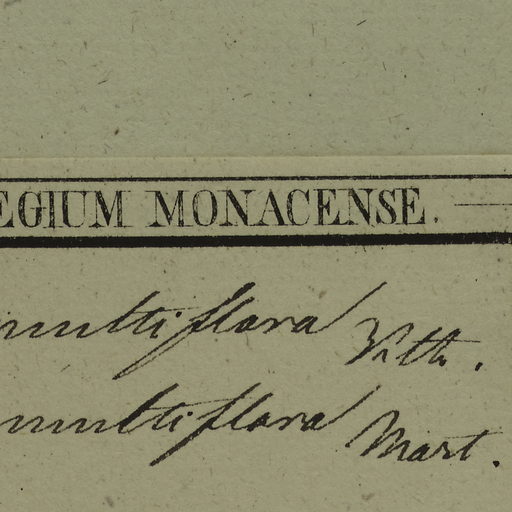 EGIUM MONACENSE.
multiflora
multiflora Mart.